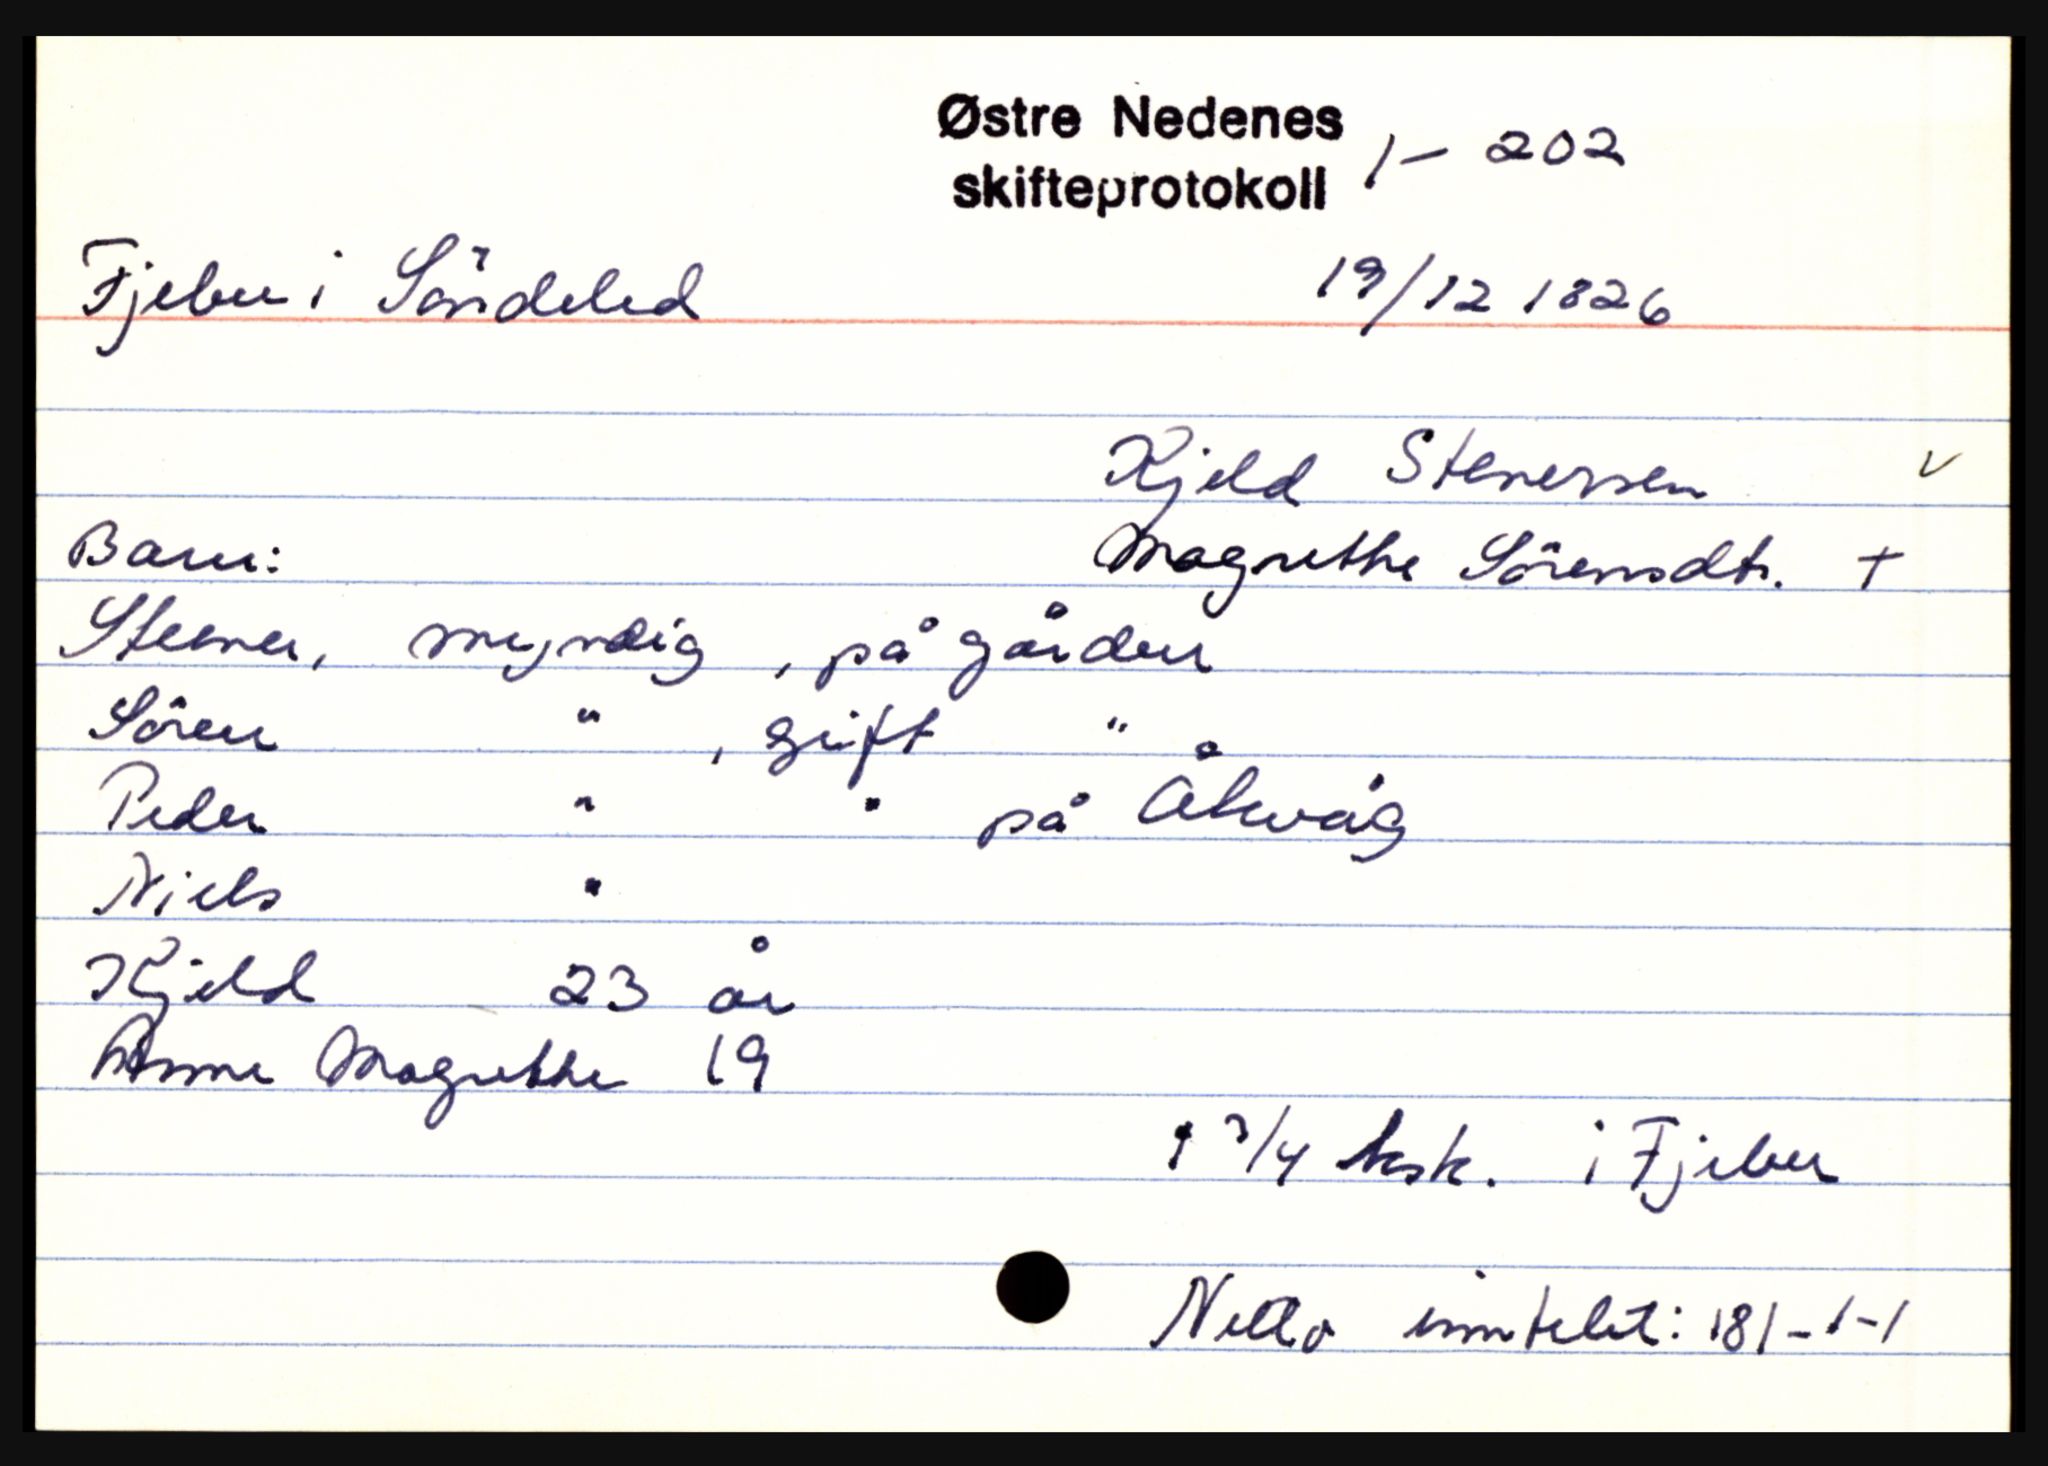 Østre Nedenes
skifteprotokoll 1 - 202
Fjeber i Söndeled 19/12 1826
Kjeld Stenersen v
Barn: Magrethe Sörensdtr. +
Steener, myndig, på gården
Sören " , gift "
Peder " " på Åkvåg
Niels "
Kjeld 23 år
Anne Magrethe 19
1 3/4 ksk. i Fjeber
Netto innteket: 181-1-1